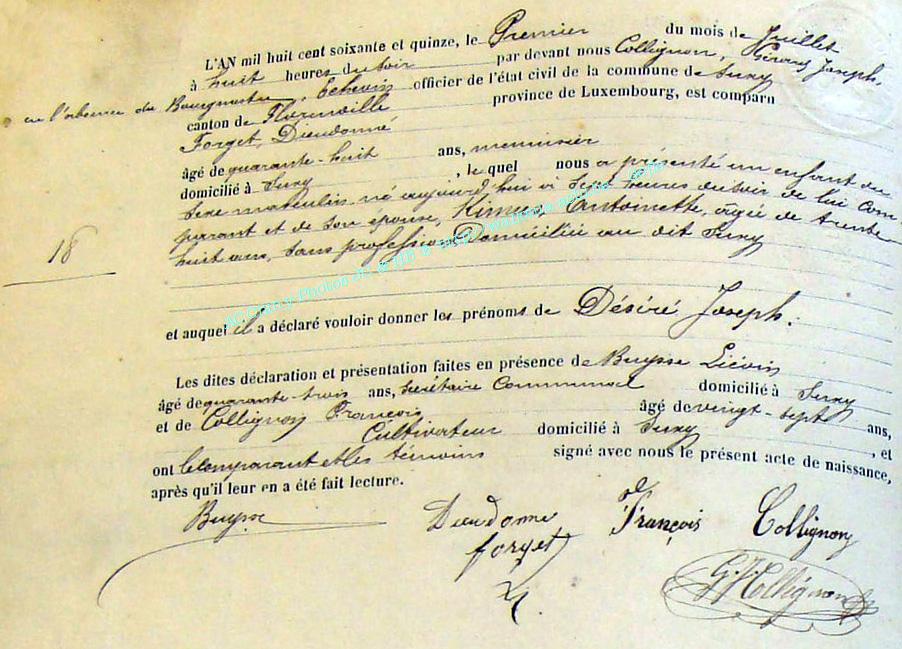 L'AN mil huit cent soixante et quinze, le Premier du mois de Juillet
à huit heures du soir par devant nous Collignon, Gérard Joseph,
en l'absence du Bourgmestre, Echevin officier de l'état civil de la commune de Suxy
canton de Florenville province de Luxembourg, est comparu
Forget, Dieudonné
âgé de quarante-huit ans, menuisier
domicilié à Suxy, le quel nous a présenté un enfant du
sexe masculin né aujourd'hui à sept heures du soir de lui com
parant et de son épouse, Antoinette, âgée de trente
huit ans, sans profession Domiciliée au dit Suxy
18
et auquel il a déclaré vouloir donner les prénoms de Désiré Joseph.
Les dites déclaration et présentation faites en présence de Buysse Liévin
âgé de quarante-trois ans, Secrétaire Communal domicilié à Suxy
et de Collignon François âgé de vingt-sept ans,
Cultivateur domicilié à Suxy, et
ont le comparant et les témoins signé avec nous le présent acte de naissance,
après qu'il leur en a été fait lecture.
Buysse Dieudonné François Collignon
forget
G. J. Collignon